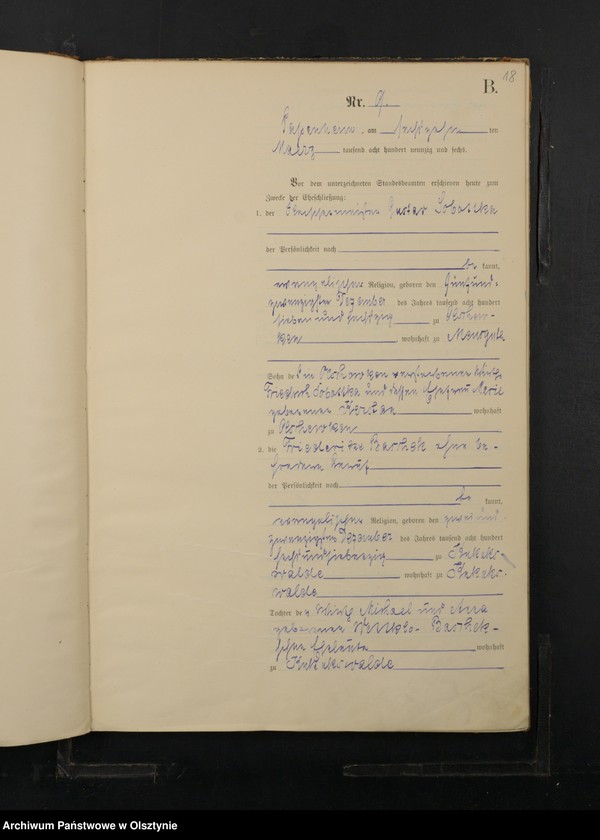 18
B.
Nr. 9.
Papenheim, am sechszehn ten
Maerz tausend acht hundert neunzig und sechs.
Vor dem unterzeichneten Standesbeamten erschienen heute zum
Zwecke der Eheschließung:
1. der Gustav Sobottka
der Persönlichkeit nach
be kannt,
evangelischer Religion, geboren den fünfund-
zwanzigsten Dezember des Jahres tausend acht hundert
sieben und sechszig zu
wohnhaft zu
Sohn des in verstorbenen Wirths
Friedrich Sobottka und dessen Ehefrau Marie
geborenen wohnhaft
zu
2. die Friederike Barthek ohne be-
sonderen Beruf
der Persönlichkeit nach
be kannt,
evangelischer Religion, geboren den zwei und
zwanzigsten Dezember des Jahres tausend acht hundert
sechs und siebenzig zu
walde wohnhaft zu
walde
Tochter der Wirth Michael und Anna
geborenen Barthek-
schen Eheleute wohnhaft
zu
Archiwum Państwowe w Olsztynie